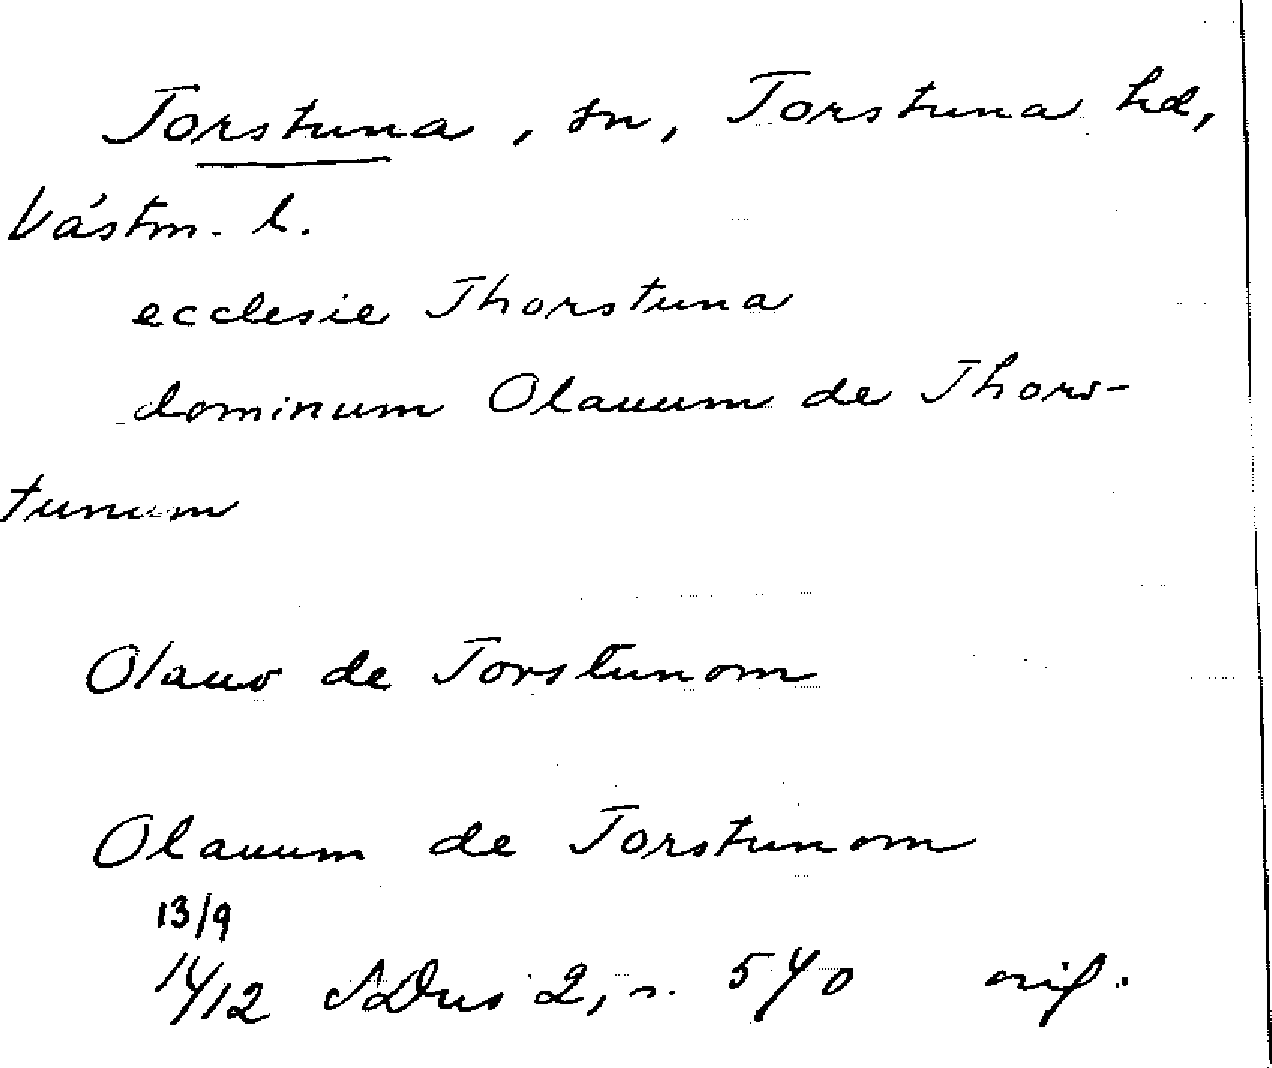 Torstuna, sn, Torstuna hd,
Västm. l.
ecclesie Thorstuna
dominum Olauum de Thors-
tunum
Olauo de Torstunom
Olauum de Torstunom
13/9
14/12 SDns 2, s. 540 orig.